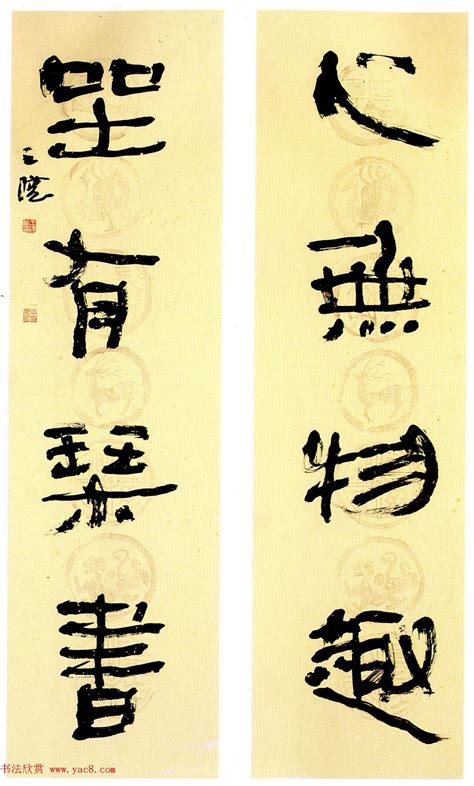 心無物趣
坐有琹書
书法欣赏 www.yac8.com